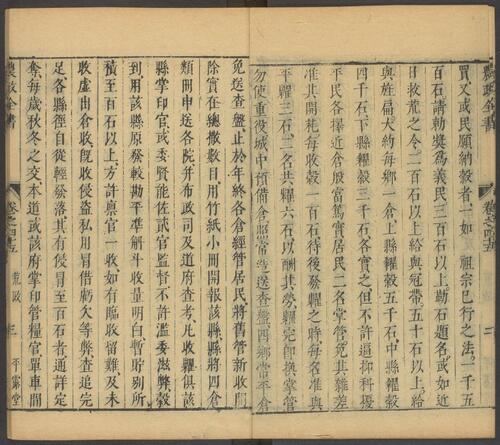 農政全書
卷之四十五
二
買又或民願納穀者一如 祖宗已行之法一千五
百石請勅獎爲義民三百石以上勒石題名或如近
日救荒之令二百石以上給與冠帶五十石以上給
與旌扁大約每鄉一倉上縣糴穀五千石中縣糴穀
四千石下縣糴穀三千石各實之但不許逼抑科擾
平民各擇近倉殷富篤實居民二名掌管免其雜差
准其開耗每收穀一百石待後發糶之時每名准與
平糶三石二名共糶六石以酬其勞糶完卽換掌管
勿使重役城中預備倉照常造送查盤四鄉常平倉
免送查盤止於年終各倉經管居民將舊管新收開
除實在總撒數目用竹紙小冊開報該縣縣將四倉
類開申送各院并布政司及道府查考凡收糶俱該
縣掌印官或委賢能佐貳官監督不許濫委滋弊穀
到用該縣原發較勘平準斗斛收量明白暫貯別所
積至百石以上方許稟官一收如有臨收留難及未
收虛出倉收旣收侵盜私用冒借虧欠等弊查追完
足各縣徑自從輕發落其有侵冒至百石者通詳定
奪每歲秋冬之交本道或該府掌印管糧官單車間
農政全書
卷之四十五
荒政
三
平露堂